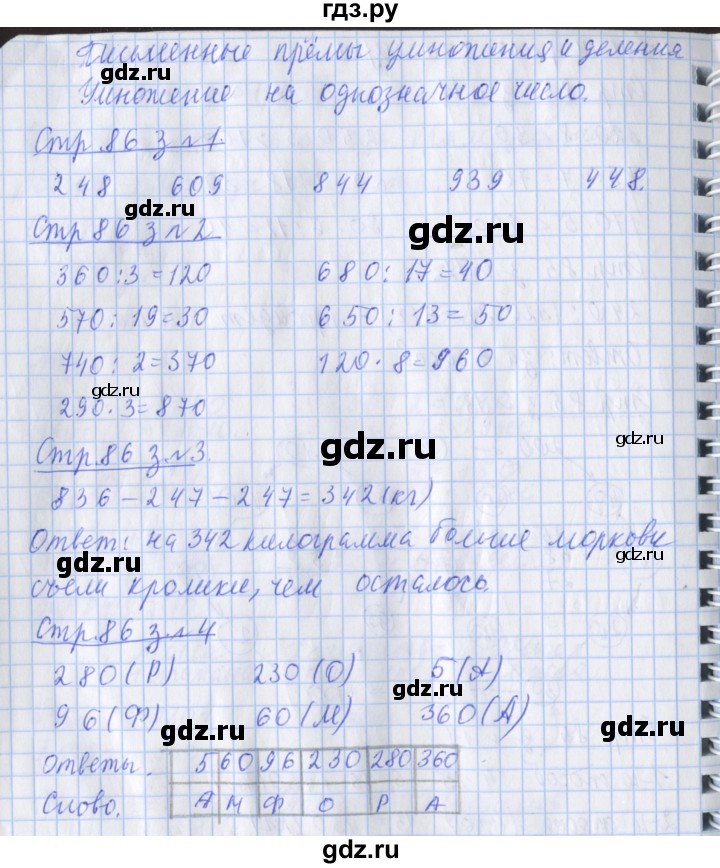 гдз.ру
Письменные прёмы умножения и деления
gdz.ru
Умножение на однозначное число.
Стр 86 з №1.
248 609 844 939 448.
gdz.ru
Стр 86 з №2 gdz.ru
360:3=120 680:17=40
gdz.ru gdz.ru
570:19=30 650:13=50
740:2=370 120·8=960
gdz.ru
290·3=870
Стр.86 з.№3 gdz.ru
836-247-247=342(кг)
gdz.ru
Ответ: на 342 килограмма больше моркови
gdz.ru gdz.ru
съели кролики, чем осталось.
Стр.86 з.№4
280(Р) 230(О) 5(А)
gdz.ru
96(Ф) 60(М) 360(А)
gdz.ru gdz.ru
Ответы. 5 60 96 230 280 360
Слово. А М Ф О Р А
gdz.ru